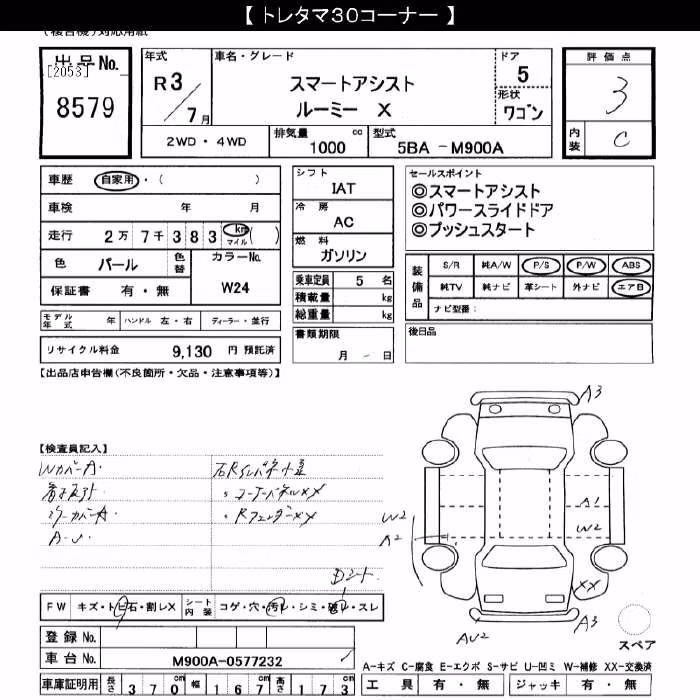 【 トレタマ30コーナー 】
出品No.
[2053]
8579
年式
R 3 / 7月
車名・グレード
スマートアシスト
ルーミー X
ドア
5
形状
ワゴン
評価点
3
内装
C
2WD・4WD
排気量 1000 cc
型式 5BA -M900A
車歴 自家用・( )
車検 年 月
走行 2万 7千 3 8 3 km マイル ( )
色 パール
色替
カラーNo.
W24
保証書 有・無
シフト
IAT
冷房
AC
燃料
ガソリン
乗車定員 5 名
積載量 kg
総重量 kg
書類期限
月 - 日
セールスポイント
◎スマートアシスト
◎パワースライドドア
◎プッシュスタート
装備品
S/R 純A/W P/S P/W ABS
純TV 純ナビ 革シート 外ナビ エアB
ナビ型番:
後日品
モデル年式 年 ハンドル 左・右 ディーラー・並行
リサイクル料金 9,130 円 預託済
【出品店申告欄(不良箇所・欠品・注意事項等)】
【検査員記入】
WカバーA・
・コーナーパネルXX
・RフェンダーXX
A・U
A3
A1
W2
W2
A2
XX
A3
AU2
スペア
FW キズ・トビ石・割レX
シート内装 コゲ・穴・汚レ・シミ・破レ・スレ
登録No.
車台No. M900A-0577232
車庫証明用 長さ 370cm 幅 167cm 高さ 173cm
A-キズ C-腐食 E-エクボ S-サビ U-凹ミ W-補修 XX-交換済
工具 有・無 ジャッキ 有・無